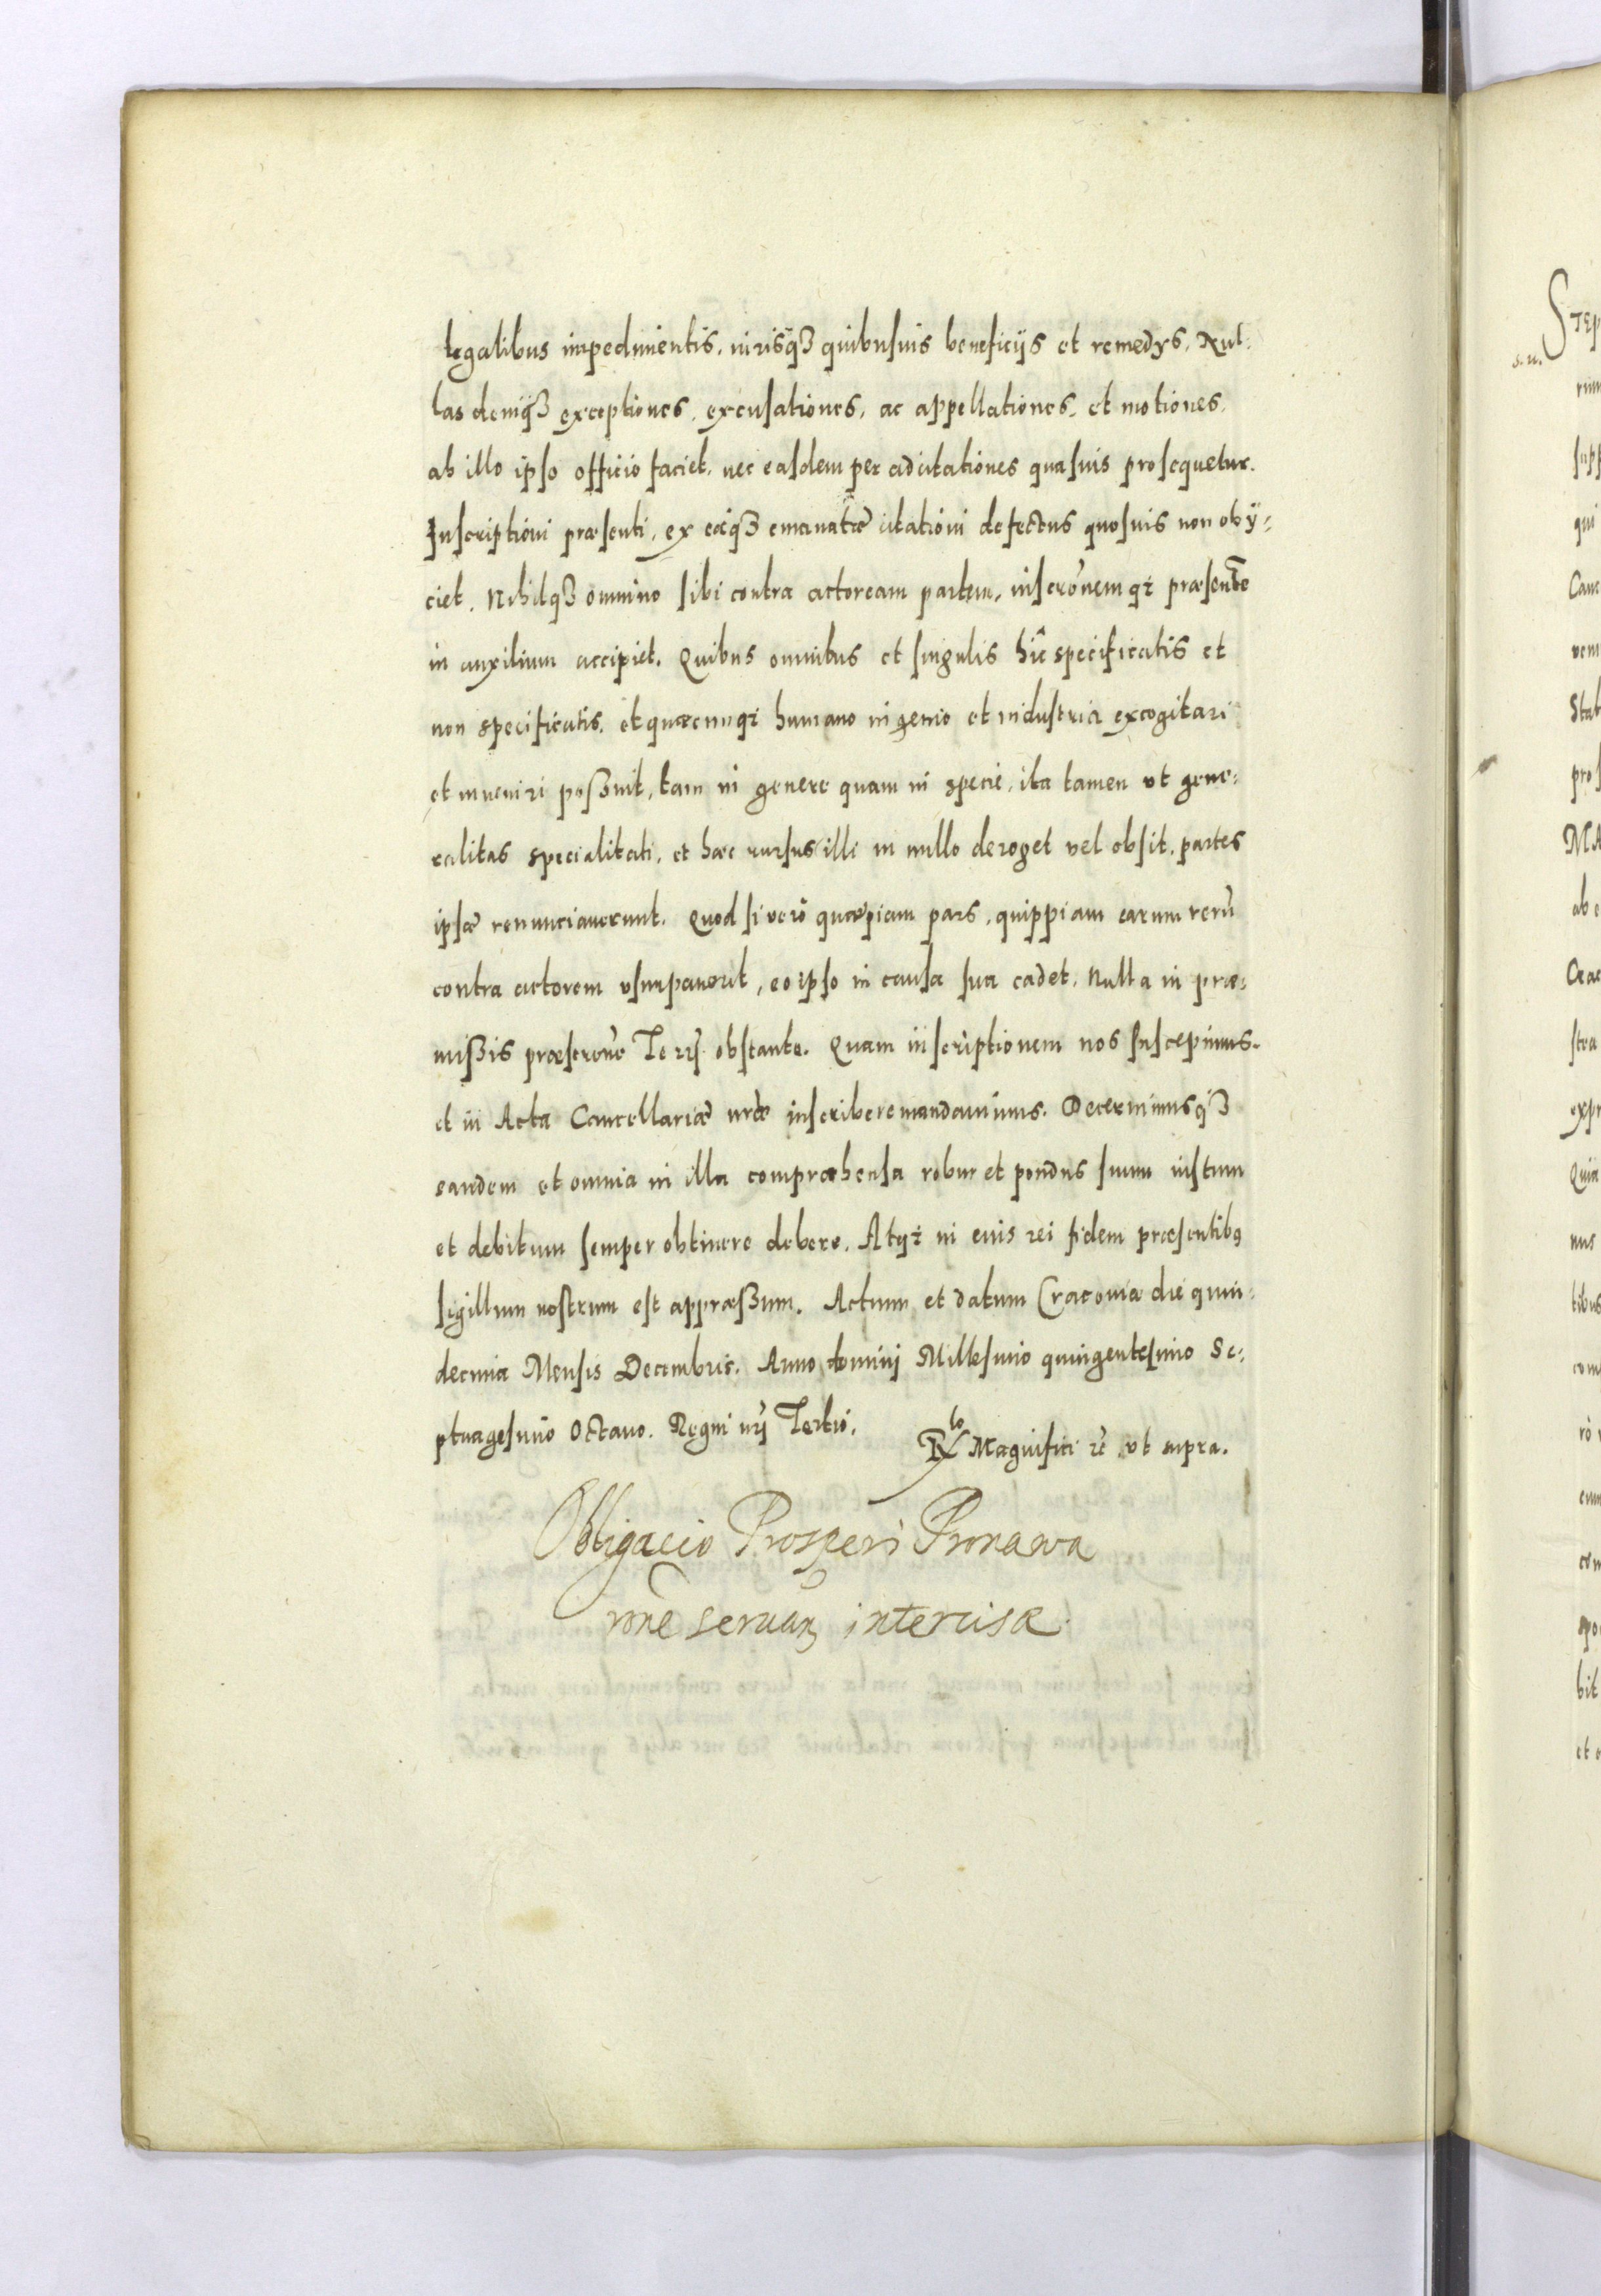 legalibus impedimentis, iurisq3 quibusuis beneficijs et remedys. Nul-
las deniq3 exceptiones, excusationes, ac appellationes, et motiones,
ab illo ipso officio faciet, nec easdem per adcitationes quasuis prosequetur.
Inscriptioni præsenti, ex eaq3 emanatæ citationi defectus quosuis non oby-
ciet. Nihilq3 omnino sibi contra actoream partem, inscrōnem q3 præsentē
in auxilium accipiet. Quibus omnibus et singulis hîc specificatis et
non specificatis, et quæcunq3 humano ingenio et industria excogitari
et inueniri possunt, tam in genere quam in specie, ita tamen vt gene-
ralitas specialitati, et hæc rursus illi in nullo deroget vel obsit, partes
ipsæ renunciauerunt. Quod si verò quæpiam pars, quippiam earum rerū
contra actorem vsurpauerit, eo ipso in causa sua cadet. Nulla in præ-
missis præscrōne Terrī obstante. Quam inscriptionem nos suscepimus.
et in Acta Cancellariæ nrǣ inscribere mandauimus. Decernimusq3
eandem et omnia in illa compræhensa robur et pondus suum iustum
et debitum semper obtinere debere. Atq3 in euis rei fidem præsentibus
sigillum nostrum est appræssum. Actum et datum Cracouiæ die quin-
decima Mensis Decembris. Anno domini Millesimo quingentesimo Se-
ptuagesimo Octauo. Regni nrī Tertio.
Rlo Magnifici rē vt supra.
Obligacio Prosperi Pronawa
rōne seruan3 intercisæ